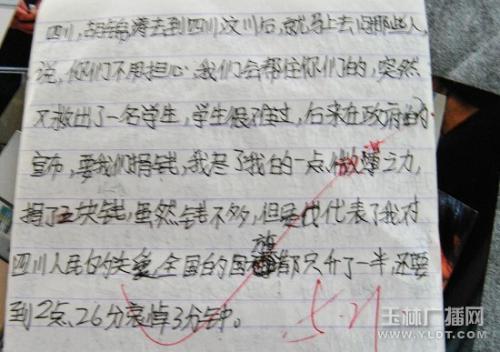 四川,胡锦涛去到四川汶川后,就马上去问那些人,
说,你们不用担心,我们会帮住你们的,突然
又救出了一名学生,学生很难过,后来在政府的
宣布,要我们捐钱,我尽了我的一点微薄之力,
捐了五块钱,虽然钱不多,但是也代表了我对
四川人民的关爱,全国的国旗都只升了一半,还要
到2点、26分哀悼3分钟。
玉林广播网
WWW.YLDT.COM